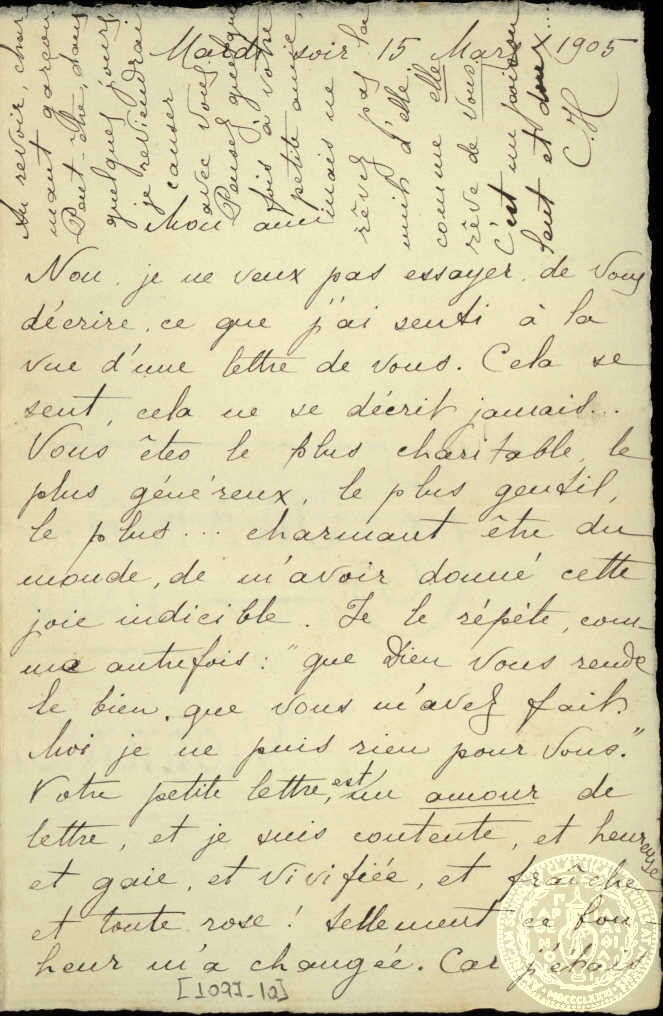 Mardi soir 15 Mars 1905
Mon ami
Non, je ne veux pas essayer, de vous
décrire, ce que j'ai senti à la
vue d'une lettre de vous. Cela se
sent, cela ne se décrit jamais...
Vous êtes le plus charitable, le
plus généreux, le plus gentil,
le plus... charmant être du
monde, de m'avoir donné cette
joie indicible. Je le répète, com-
me autrefois: "que Dieu vous rende
le bien, que vous m'avez fait.
Moi je ne puis rien pour vous."
Votre petite lettre, est un amour de
lettre, et je suis contente, et heureuse,
et gaie, et vivifiée, et fraîche
et toute rose! tellement ce bon
heur m'a changée. Car j'étais
[1097-10]
Au revoir, char
mant garçon.
Peut-être, dans
quelques jours,
je reviendrai
causer
avec vous.
Pensez quelque
fois à votre
petite amie,
mais ne
rêvez pas la
nuit d'elle,
comme elle
rêve de vous,
c'est un poison
lent et doux...
C. H